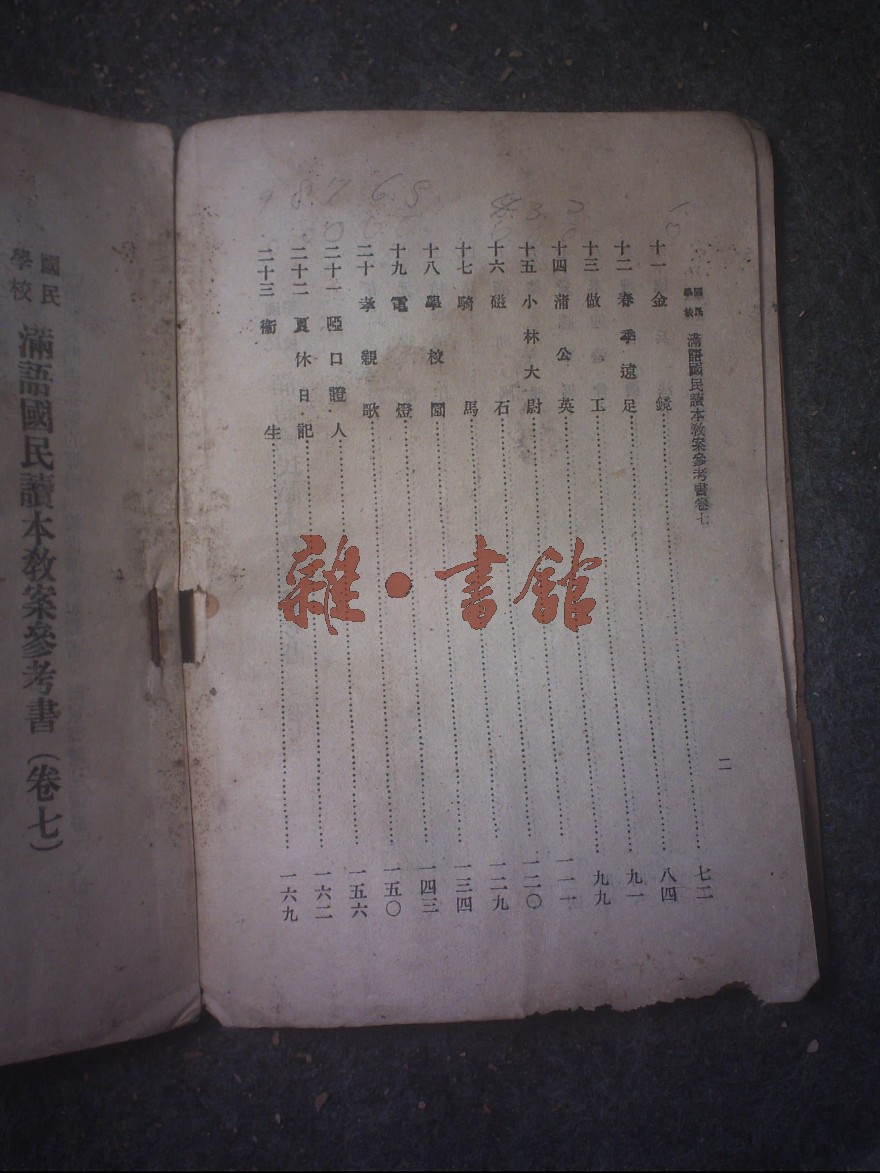 國民學校 滿語國民讀本教案參考書卷七
二
十一 金鏡……七二
十二 春季遠足……八四
十三 做工……九一
十四 蒲公英……九九
十五 小林大尉……一一一
十六 磁石……一二〇
十七 騎馬……一二九
十八 學校園……一三四
十九 電燈……一四三
二十 孝親歌……一五〇
二十一 啞口證人……一五六
二十二 夏休日記……一六二
二十三 衞生……一六九
國民學校 滿語國民讀本教案參考書(卷七)
雜·書館